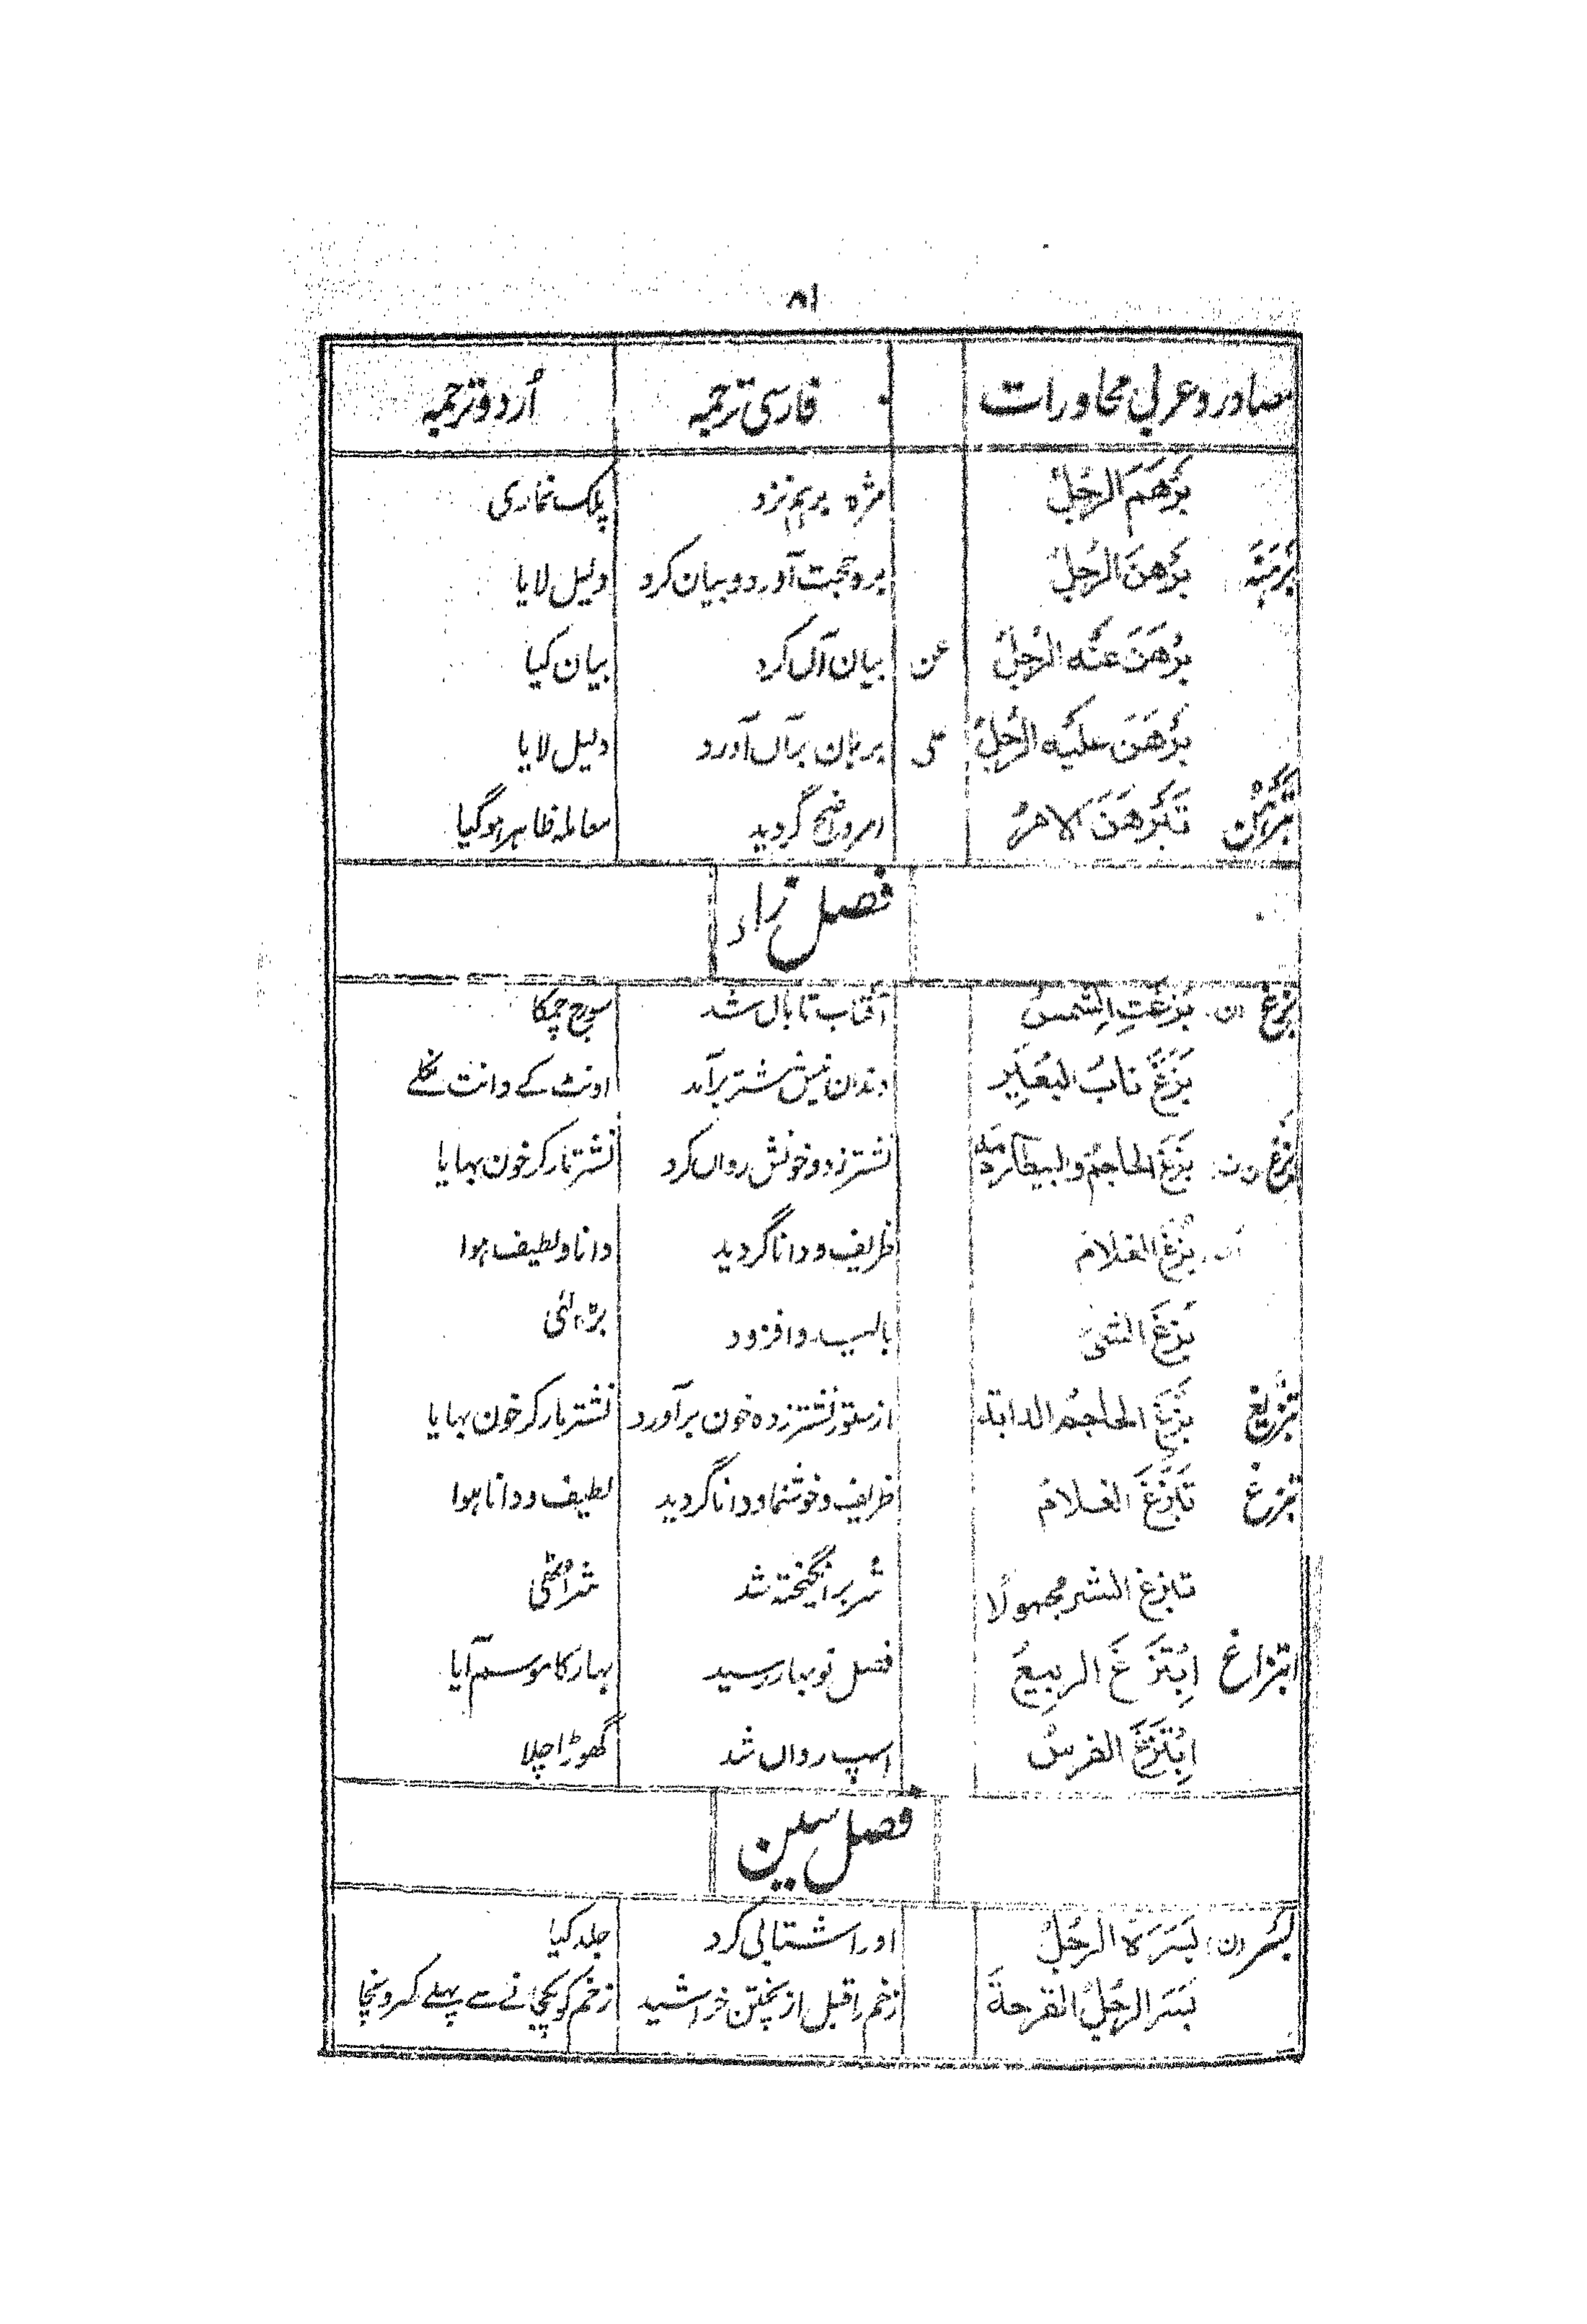 ۸۱
مصادر و عربی محاورات فارسی ترجمہ اُردو ترجمہ
بَرْهَمَ الرَّجُلُ مژہ برہم نزد پلک نماری
بَرْہَنَۃ بَرْهَنَ الرَّجُلُ برو حجت آورد و بیان کرد دلیل لایا
بَرْهَنَ عَنْه الرَّجُلُ عن بیان آں کرد بیان کیا
بَرْهَنَ عَلَيْه الرَّجُلُ علی برہان برآں آورد دلیل لایا
تَبَرْہُن تَبَرْهَنَ الامرُ امر واضح گردید معاملہ ظاہر ہوگیا
فصل زاء
بزغ (ن) بَزَغَتِ الشمسُ آفتاب تاباں شد سورج چمکا
بَزَغَ نابُ البَعِير دندان نیش شتر برآمد اونٹ کے دانت نکلے
بزغ (ن) بَزَغَ الحاجمُ والبيطارُ نشتر زد و خونش رواں کرد نشتر مار کر خون بہایا
بَزُغَ الغلام ظریف و دانا گردید دانا و لطیف ہوا
بَزغَ الشئ بالید و افزود
تبزیغ بَزَّغَ الحاجمُ الدابَّة از ستور نشتر زدہ خون برآورد نشتر مار کر خون بہایا
تبزغ تَبَزَّغَ الغلامُ ظریف و خوشنما و دانا گردید لطیف و دانا ہوا
تبزغ الشر مجہولًا شر برانگیختہ شد شر اُٹھی
ابتزاغ اِبْتَزَغَ الربيعُ فصل نو بہار رسید بہار کا موسم آیا
اِبْتَزَغَ الفرسُ اسپ رواں شد گھوڑا چلا
فصل سین
بَسْر (ن) بَسَرَهٗ الرَّجُلُ اورا شتابی کرد جلد کیا
بَسَرَ الرَّجُلُ القرحةَ زخم را قبل از پختن خراشید زخم کو پکجانے سے پہلے کھرونچا